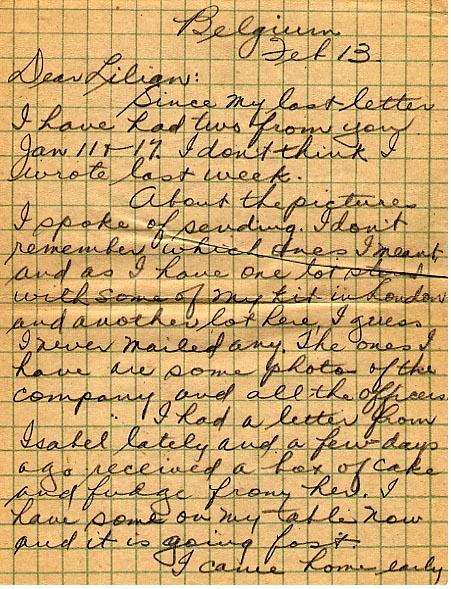 Belgium
Feb 13.
Dear Lilian:
Since my last letter
I have had two from you
Jan 11 + 17. I don't think I
wrote last week.
About the pictures
I spoke of sending. I don't
remember which ones I meant
and as I have one lot
with some of my kit in London
and another lot here, I guess
I never mailed any. The ones I
have are some photos of the
company and all the officers.
I had a letter from
Isabel lately and a few days
ago received a box of cake
and fudge from her. I
have some on my table now
and it is going fast.
I came home early